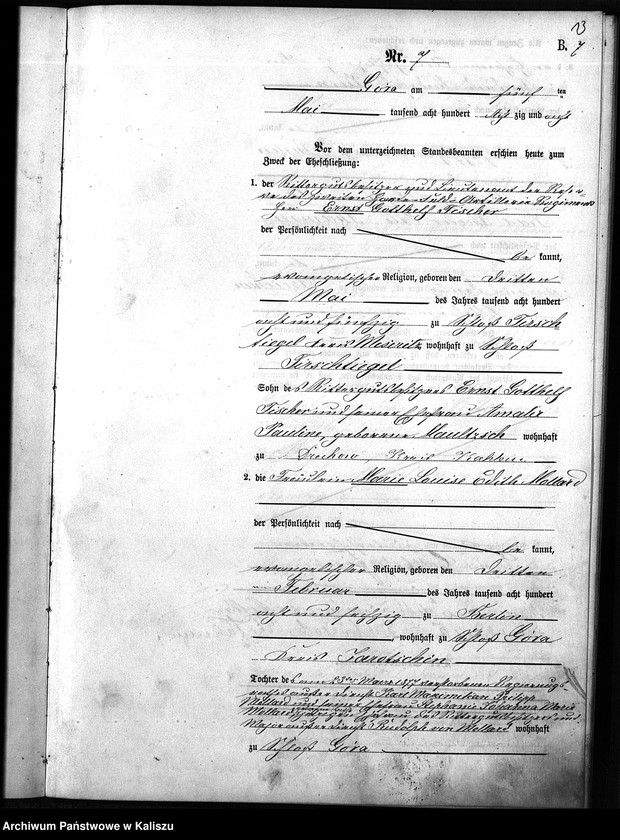 13
B. 7
Nr. 7
Gora am fünf ten
Mai tausend acht hundert acht zig und acht
Vor dem unterzeichneten Standesbeamten erschien heute zum
Zweck der Eheschließung:
1. der Rittergutsbesitzer und Lieutenant der Reser-
ve des zweiten Feld-Artillerie Regiments
Herr Ernst Gotthelf Fischer
der Persönlichkeit nach
be kannt,
evangelischer Religion, geboren den dritten
Mai des Jahres tausend acht hundert
acht und fünfzig zu Schloß Tirsch
tiegel Kreis Meseritz, wohnhaft zu Schloß
Tirschtiegel
Sohn des Rittergutsbesitzers Ernst Gotthelf
Fischer und seiner Ehefrau Amalie
Pauline, geborene Maultzsch wohnhaft
zu Drehow, Kreis
2. die Fräulein Marie Louise Edith Mollard
der Persönlichkeit nach
be kannt,
evangelischer Religion, geboren den dritten
Februar des Jahres tausend acht hundert
acht und sechzig zu Berlin
, wohnhaft zu Schloß Góra
Kreis Jarotschin
Tochter des am März 1877 verstorbenen Regierungs
raths außer Dienst Karl Maximilian Philipp
Mollard und seiner Ehefrau Stephanie Johanna Marie
Mollard jetzigen Ehefrau des Rittergutsbesitzers und
Major außer Dienst Rudolph von Mollard wohnhaft
zu Schloß Góra
Archiwum Państwowe w Kaliszu